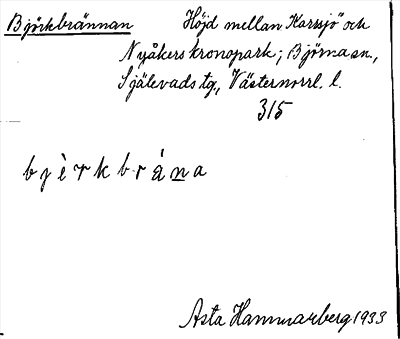 Björkbrännan Höjd mellan Karssjö och
Nyåkers kronopark; Björna sn.,
Själevads tg., Västernorrl. l.
315
b j è r k b r á n a
Asta Hammarberg 1933